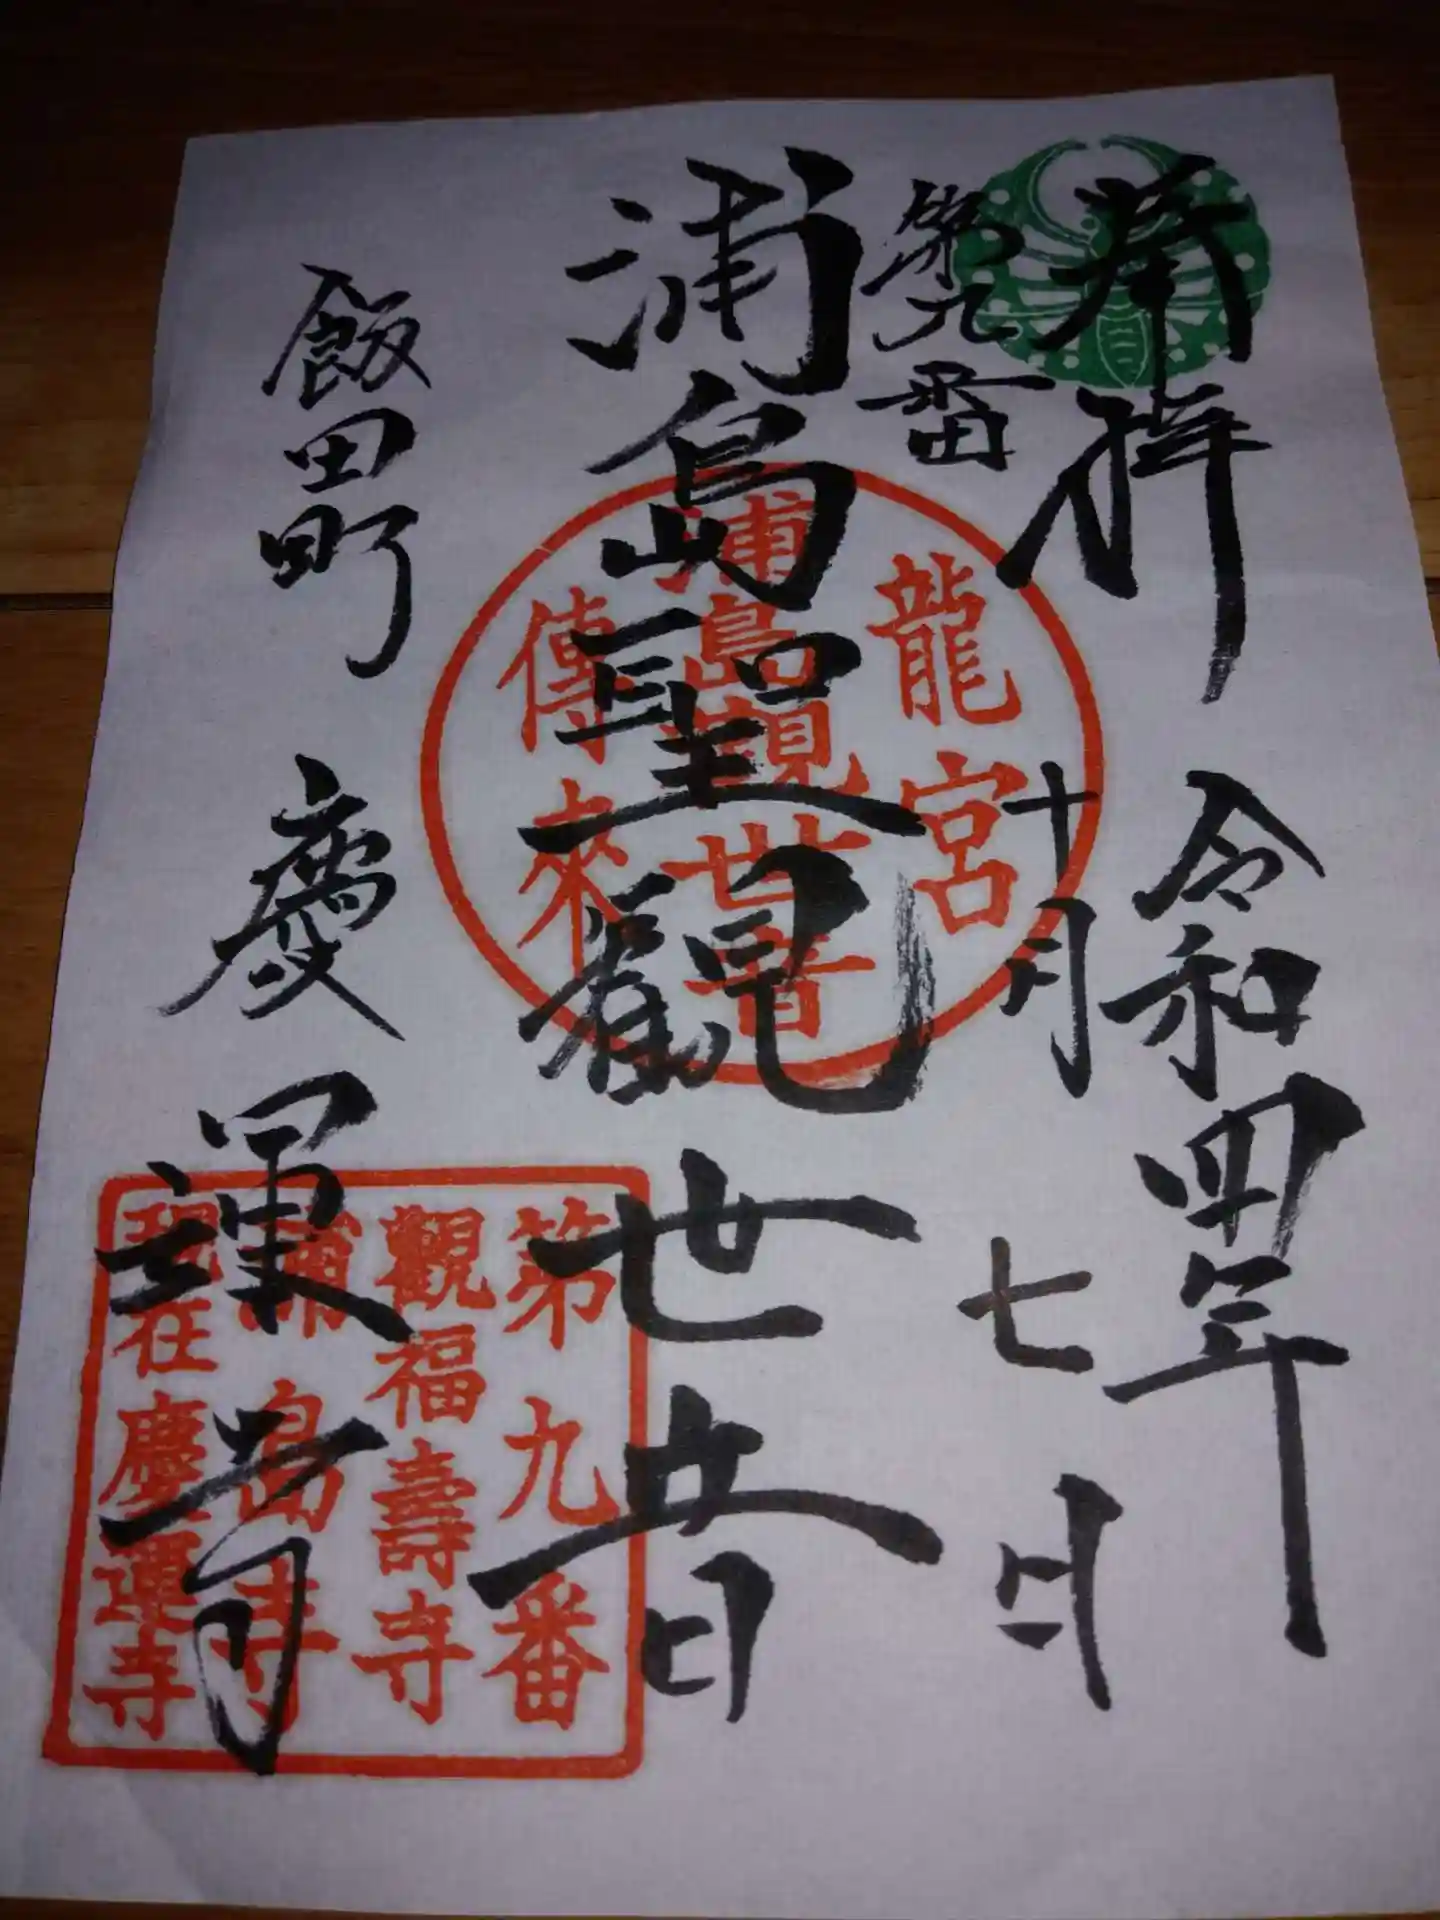 奉拝
令和四年
十月
七日
第九番
浦島聖観世音
飯田町
慶運寺
龍宮
浦島観世音
傳來
第九番
觀福壽寺
浦島寺
現在慶運寺